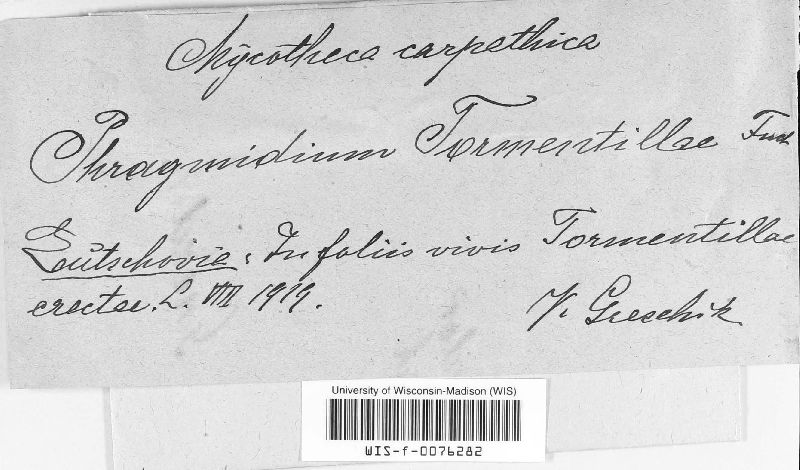 Mycotheca carpathica
Phragmidium Tormentillae Fuck
Leutschovia: In foliis vivis Tormentillae
erectae. L. VIII 1919.
V. Greschik
University of Wisconsin-Madison (WIS)
WIS-f-0076282